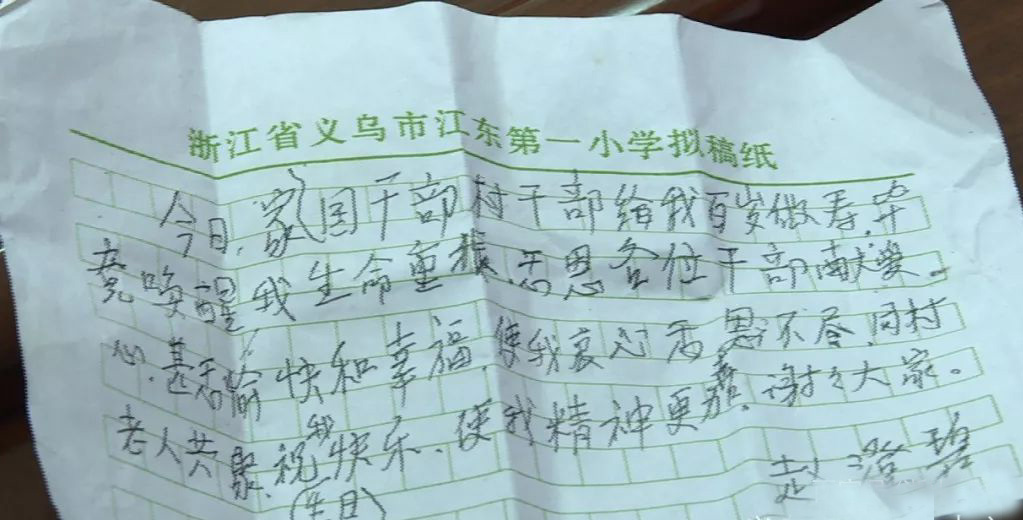 浙江省义乌市江东第一小学拟稿纸
今日,家国干部村干部给我百岁做寿,
唤醒我生命重振,感恩各位干部献爱
心,甚為愉快和幸福,使我衷心感恩不尽,同村
老人共聚,祝我快乐,使我精神更喜,谢々大家。
(生日)
赵澄碧